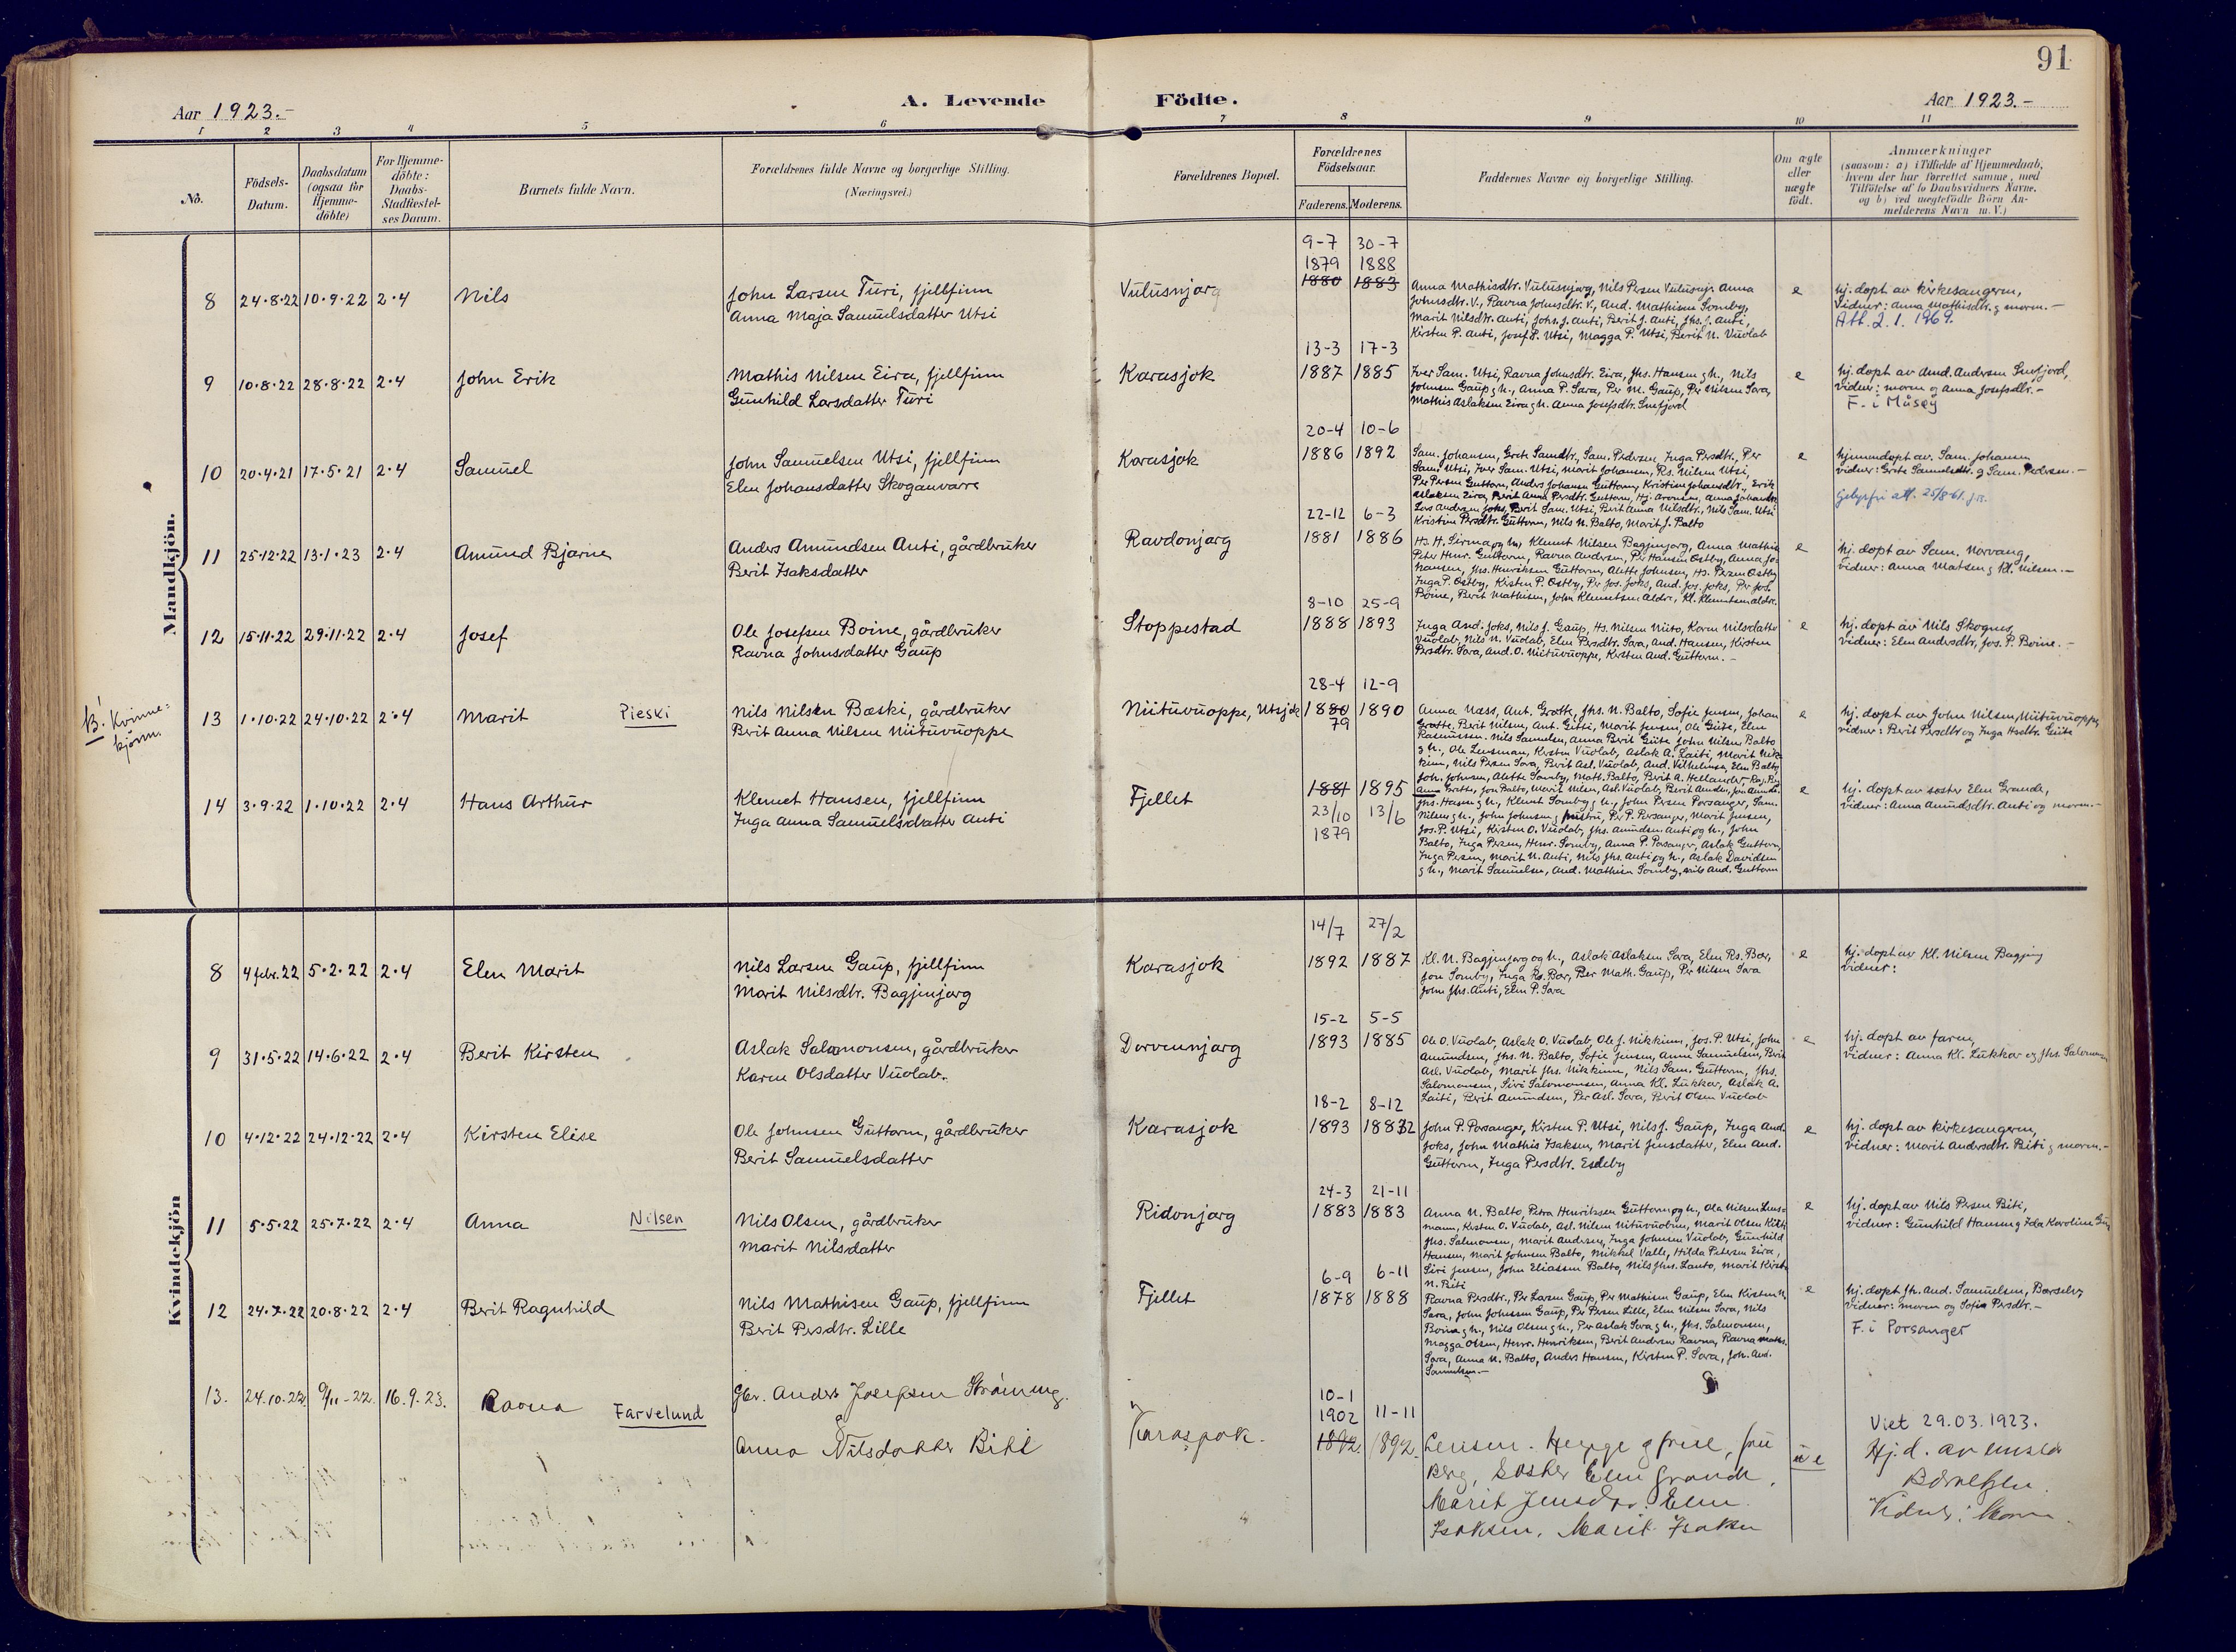 91
Aar 1923.-
A. Levende
Födte.
Aar 1923.-
1 2 3 4 5 6 7 8 9 10 11
No.
Födsels-Datum.
Daabsdatum (ogsaa for Hjemme-döbte)
For Hjemme-döbte: Daabs-Stadfæstel-ses Datum.
Barnets fulde Navn.
Forældrenes fulde Navne og borgerlige Stilling. (Næringsvei.)
Forældrenes Bopæl.
Forældrenes Födselsaar.
Faderens. Moderens.
Faddernes Navne og borgerlige Stilling.
Om ægte eller uægte födt.
Anmærkninger
(saasom: a) i Tilfælde af Hjemmedaab,
hvem der har forrettet samme, med
Tilföielse af to Daabsvidners Navne.
og b) ved uægtefödte Börn An-
melderens Navn m. V.)
Mandkjön.
9-7 30-7
1879 1888
1880 1883
8 24.8.22 10.9.22 2.4 Nils
John Larsen Turi, fjellfinn
Anna Maja Samuelsdatter Utsi
Vulusnjarg
Anna Mathisdtr. Vulusnjarg, Nils Persen Vulusnj. Anna
Johnsdtr. V., Ravna Johnsdtr. V., And. Mathisen Somby,
Marit Nilsdtr. Anti, Johs. J. Anti, Berit J. Anti, Jhs. J. Anti,
Kirsten P. Anti, Josef P. Utsi, Magga P. Utsi, Berit N. Vuolab
e
hj. døpt av kirkesangeren,
Vidner: Anna Mathisdtr. og moren.-
Att. 2.1. 1969.
13-3 17-3
9 10.8.22 28.8.22 2.4 John Erik
Mathis Nilsen Eira, fjellfinn
Gunhild Larsdatter Turi
Karasjok
1887 1885
Iver Sam. Utsi, Ravna Johnsdtr. Eira, Jhs. Hansen g h., Nils
Johnsen Gaup g h., Anna P. Sara, Per M. Gaup, Per Nilsen Sara,
Mathis Aslaksen Eira g h. Anna Josefsdtr. Snefjord
e
hj. døpt av And. Andersen Snefjord,
vidner: moren og Anna Josefsdtr.-
F. i Måsøy
20-4 10-6
10 20.4.21 17.5.21 2.4 Samuel
John Samuelsen Utsi, fjellfinn
Elen Johansdatter Skoganvarre
Karasjok
1886 1892
Sam. Johansen, Grete Samdtr., Sam. Pedersen Inga Persdtr., Per
Sam. Utsi, Iver Sam. Utsi, Marit Johansen, Rs. Nilsen Utsi,
Per Persen Guttorm, Anders Johansen Guttorm, Kristine Johansdtr., Erik
Aslaksen Eira, Berit Anna Persdtr. Guttorm, Hj. Aronsen, Anna Johansdtr.
Lars Andersen Joks, Berit Sam. Utsi, Berit Anna Nilsdtr., Nils Sam. Utsi
Kristine Persdtr. Guttorm, Nils N. Balto, Marit J. Balto
e
hjemmedøpt av. Sam. Johansen
vidner: Grete Samuelsdtr. og Sam. Pedersen.-
gebyrfri att. 25/8-61. J.B.
22-12 6-3
11 25.12.22 13.1.23 2.4 Amund Bjarne
Anders Amundsen Anti, gårdbruker
Berit Isaksdatter
Ravdonjarg
1881 1886
Hs. H. Sirma og h., Klemet Nilsen Bagjinjarg, Anna Mathis
Peter Henr. Guttorm, Ravna Andersen, Per Hansen Østby, Anna Jo-
hansen, Jhs. Henriksen Guttorm, Alette Johnsen, Hs. Persen Østby
Inga P. Østby, Kirsten P. Østby, Per Jos. Joks, And. Jos. Joks, Per Jos.
Boine, Berit Mathisen, John Klemetsen aldre, Kl. Klemetsen aldre.
e
hj. døpt av Sam. Norvang,
vidner: Anna Matsen g Kl. Nilsen.-
8-10 25-9
12 15.11.22 29.11.22 2.4 Josef
Ole Josefsen Boine, gårdbruker
Ravna Johnsdatter Gaup
Stoppestad
1888 1893
Inga And. Joks, Nils J. Gaup, Hs. Nilsen Niito, Karen Nilsdatter
Vuolab, Nils N. Vuolab, Elen Persdtr. Sara, And. Hansen, Kirsten
Persdtr. Sara, And. O. Niituvuoppe, Kirsten And. Guttorm.-
e
hj. døpt av Nils Skognes,
vidner: Elen Andersdtr, Jos. P. Boine.-
B! Kvinne-
kjønn.
28-4 12-9
13 1.10.22 24.10.22 2.4 Marit Pieski
Nils Nilsen Bæski, gårdbruker
Berit Anna Nilsen Niituvuoppe
Niituvuoppe, Utsjok
1880 1890
79
Anna Næss, Ant. Grøtte, Jhs. N. Balto, Sofie Jensen, Johan
Grøtte, Berit Nilsen, Ant. Gutsi, Marit Jensen, Ole Guse, Elen
Rasmussen. Nils Samuelsen, Anna Berit Guse John Nilsen Balto
g h., Ole Lensman, Kirsten Vuolab, Aslak A. Laiti, Marit Nik-
kinen, Nils Persen Sara, Berit Asl. Vuolab, And. Vilhelmsen, Elen Balto
Joh. Johnsen, Alette Somby, Math. Balto, Berit A. Hellander
e
hj. døpt av John Nilsen, Niituvuoppe,
vidner: Berit Persdtr og Inga Hsdtr. Guse
14 3.9.22 1.10.22 2.4 Hans Arthur
Klemet Hansen, fjellfinn
Inga Anna Samuelsdatter Anti
Fjellet
1881 1895
23/10 13/6
1879
Anna Grøtte, Jon Balto, Marit Nilsen, Asl. Vuolab, Berit Anders,
Jhs. Hansen g h., Klemet Somby g h., John Persen Porsanger, Sam.
Nilsen g h., John Johnsen g hustru, Per P. Porsanger, Marit Jensen,
Jos. P. Utsi, Kirsten O. Vuolab, Jhs. Amundsen Anti og h., John
Balto, Inga Persen, Henr. Somby, Anna P. Porsanger, Aslak Guttorm,
Inga Persen, Marit N. Anti, Nils Jhs. Anti og h., Aslak Davidsen
g h., Marit Samuelsen, And. Mathisen Somby, Nils And. Guttorm
e
hj. døpt av søster Elen Grande,
vidner: Anna Amundsdtr. Anti og moren.-
Kvindekjön
14/7 27/2
8 4 febr. 22 5.2.22 2.4 Elen Marit
Nils Larsen Gaup, fjellfinn
Marit Nilsdtr. Bagjinjarg
Karasjok
1892 1887
Kl. N. Bagjinjarg og h., Aslak Aslaksen Sara, Elen Rs. Bær,
Jon Somby, Inga Rs. Bær, Per Math. Gaup, Per Nilsen Sara
John Jhs. Anti, Elen P. Sara
e
hj. døpt av Kl. Nilsen Bagjinj
vidner:
15-2 5-5
9 31.5.22 14.6.22 2.4 Berit Kirsten
Aslak Salomonsen, gårdbruker
Karen Olsdatter Vuolab.
Dorvonnjarg
1893 1885
Ole O. Vuolab, Aslak O. Vuolab, Ole J. Nikkinen, Jos. P. Utsi, John
Amundsen, Jhs. N. Balto, Sofie Jensen, Anne Samuelsen, Berit
Asl. Vuolab, Marit Jhs. Nikkinen, Nils Sam. Guttorm, Jhs.
Salomonsen, Siri Salomonsen, Anna Kl. Lukkar, Aslak A.
Laiti, Berit Amundsen, Per Asl. Sara, Berit Olsen Vuolab
e
hj. døpt av faren,
vidner: Anna Kl. Lukkar og Jhs. Salomonsen
18-2 8-12
10 4.12.22 24.12.22 2.4 Kirsten Elise
Ole Johnsen Guttorm, gårdbruker
Berit Samuelsdatter
Karasjok
1893 1882
John P. Porsanger, Kirsten P. Utsi, Nils J. Gaup, Inga And.
Joks, John Mathis Isaksen, Marit Jensdatter, Elen And.
Guttorm, Inga Persdtr. Eseby
e
hj. døpt av kirkesangeren,
vidner: Marit Andersdtr. Biti g moren.-
24-3 21-11
11 5.5.22 25.7.22 2.4 Anna Nilsen
Nils Olsen, gårdbruker
Marit Nilsdatter
Ridonjarg
1883 1883
Anna N. Balto, Petra Henriksen Guttorm og h., Ola Nilsen Lens-
mann, Kirsten O. Vuolab, Asl. Nilsen Nituvuobme, Marit Olsen
Jhs. Salmonsen, Marit Andersen, Inga Johnsen Vuolab, Gunhild
Hansen, Marit Johnsen Balto, Mikkel Valle, Hilda Petersen Eira,
Siri Jensen, John Eliassen Balto, Nils Jhns. Lanto, Marit Kirsti
N. Biti
e
hj. døpt av Nils Persen Biti,
vidner: Gunhild Hansen g Ida Karoline
6-9 6-11
12 24.7.22 20.8.22 2.4 Berit Ragnhild
Nils Mathisen Gaup, fjellfinn
Berit Persdtr. Lille
Fjellet
1878 1888
Ravna Persdtr., Per Larsen Gaup, Per Mathisen Gaup, Elen Kirsten N.
Sara, John Johnsen Gaup, Per Persen Lille, Elen Nilsen Sara, Nils
Boine g h., Nils Olsen g h., Per Aslak Sara g h., Jhs. Salmonsen,
Magga Olsen, Henr. Henriksen, Berit Andersen Ravna, Ravna Maths.
Sara, Anna N. Balto, Anders Hansen, Kirsten P. Sara, Joh. And.
Samuelsen.-
e
hj. døpt Jh. And. Samuelsen, Børselv,
vidner: moren og Sofie Persdtr.-
F. i Porsanger
10-1
1902 11-11
1892 1892.
13. 24.10.22. 9/11-22. 16.9.23. Ravna Farvelund
Gbr. Anders Josefsen Strömeng.
Anna Nilsdatter Biti
Karasjok.
Lensm. Heyge g frue, fru
Berg, Søster Elen Grande,
Marit Jensdtr. Elen
Isaksen, Marit Isaksen
e
Viet 29.03.1923.
Hj. d. av
Vidner: Moren